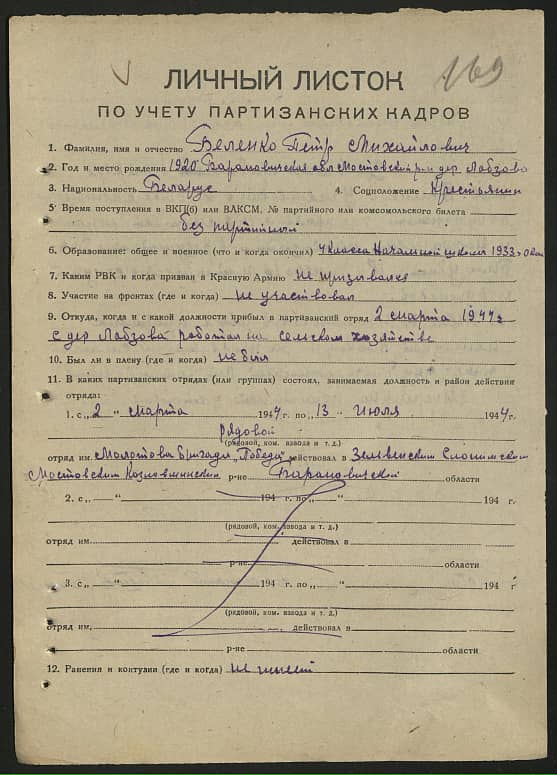 169
ЛИЧНЫЙ ЛИСТОК
ПО УЧЕТУ ПАРТИЗАНСКИХ КАДРОВ
1. Фамилия, имя и отчество Беленко Петр Михайлович
2. Год и место рождения 1920 Барановичская обл Мостовский р-н дер Лобзово
3. Национальность Беларус 4. Соцположение Крестьянин
5. Время поступления в ВКП(б) или ВЛКСМ, № партийного или комсомольского билета
без партийный
6. Образование: общее и военное (что и когда окончил) 4 класса Начальной школы 1933
7. Каким РВК и когда призван в Красную Армию не призывался
8. Участие на фронтах (где и когда) не участвовал
9. Откуда, когда и с какой должности прибыл в партизанский отряд 2 марта 1944г
с дер Лобзова работал на сельском хозяйстве
10. Был ли в плену (где и когда) не был
11. В каких партизанских отрядах (или группах) состоял, занимаемая должность и район действия
отряда:
1. с „2“ марта 1944 г. по „13“ Июля 1944 г.
рядовой
(рядовой, ком. взвода и т. д.)
отряд им. Молотова бригады „Победа“ действовал в Зельвенским Слонимском
Мостовским Козловщинским р-не Барановичской области
2. с „ “ 194 г. по „ “ 194 г.
(рядовой, ком. взвода и т. д.)
отряд им. действовал в
р-не области
3. с „ “ 194 г. по „ “ 194 г
(рядовой, ком. взвода и т. д.)
отряд им. действовал в
р-не области
12. Ранения и контузии (где и когда) не имеет